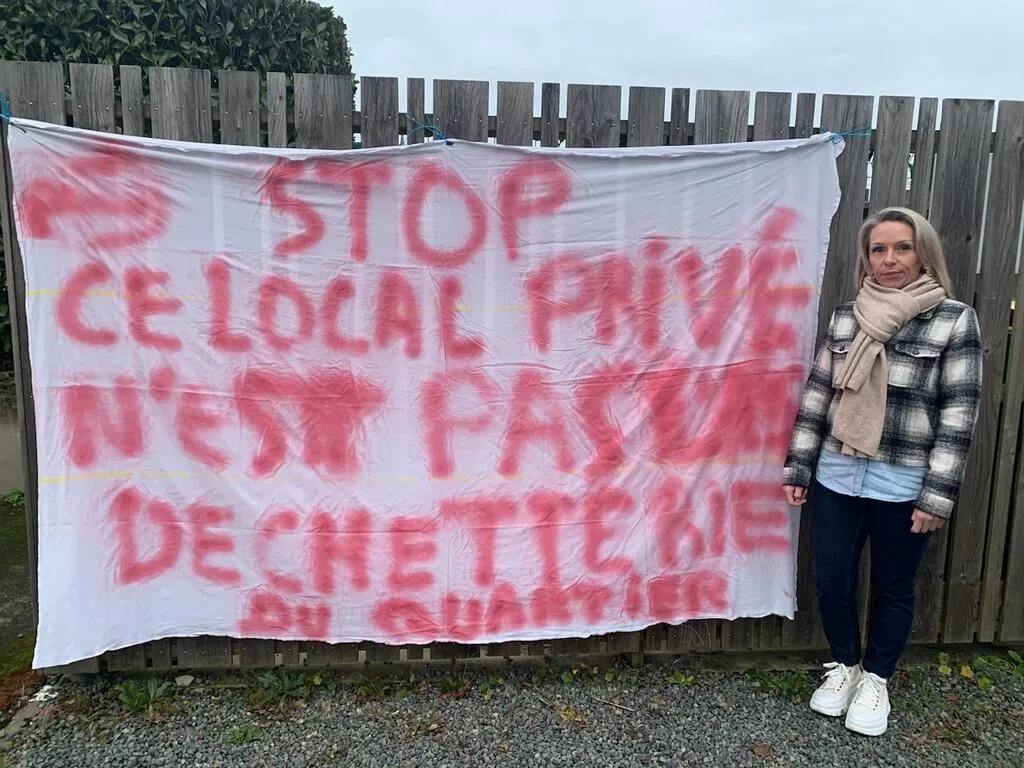 STOP
CE LOCAL PRIVÉ
N'EST PAS UNE
DECHETTERIE
DU QUARTIER